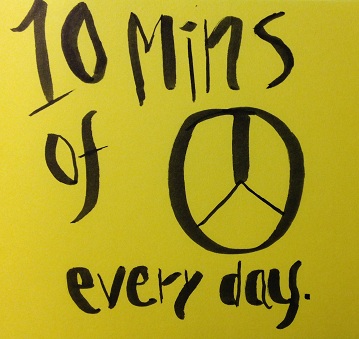 10 Mins
of
every day.